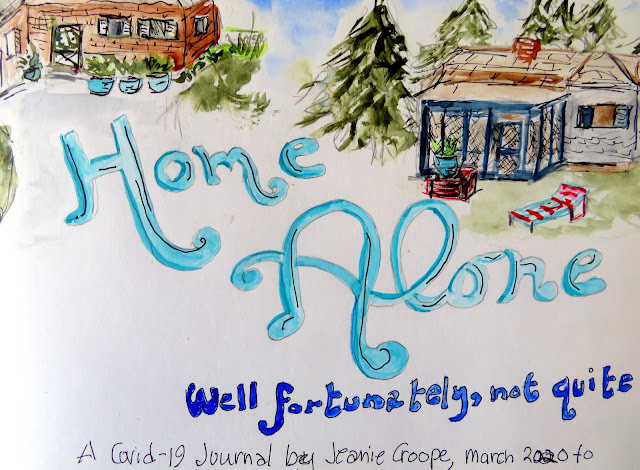 Home
Alone
Well fortunately, not quite
A Covid-19 Journal by Jeanie Croope, march 2020 to